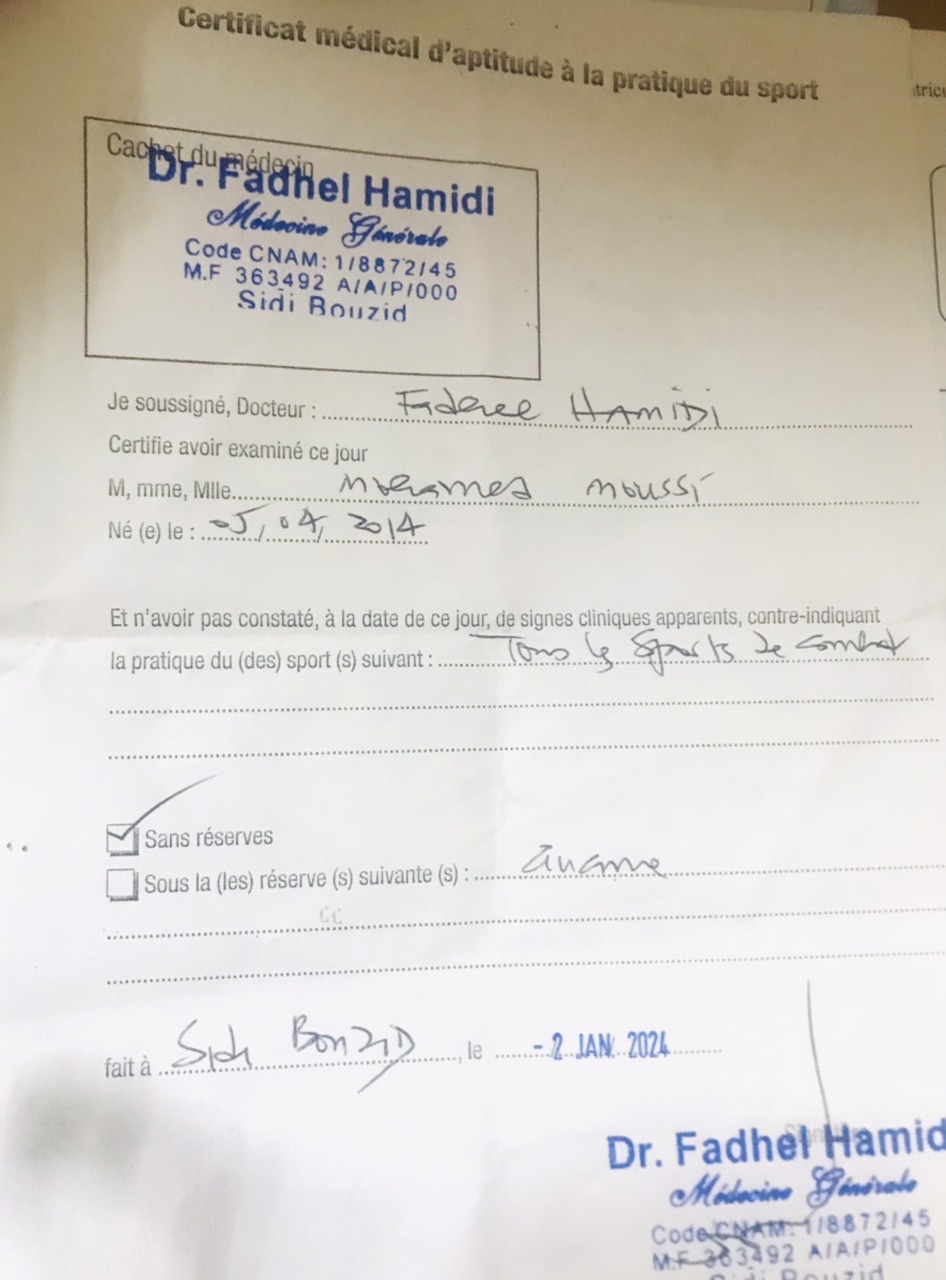 Certificat médical d'aptitude à la pratique du sport
Cachet du médecin
Dr. Fadhel Hamidi
Médecine Générale
Code CNAM: 1/8872/45
M.F 363492 A/A/P/000
Sidi Bouzid
Je soussigné, Docteur : HAMIDI
Certifie avoir examiné ce jour
M, mme, Mlle. Mohamed moussi
Né (e) le : 05, 04, 2014
Et n'avoir pas constaté, à la date de ce jour, de signes cliniques apparents, contre-indiquant
la pratique du (des) sport (s) suivant : Tous les sports de combat
Sans réserves
Sous la (les) réserve (s) suivante (s) :
fait à Sidi Bouzid, le - 2 JAN. 2024
Dr. Fadhel Hamid
Médecine Générale
Code CNAM: 1/8872/45
M.F 363492 A/A/P/000
Sidi Bouzid